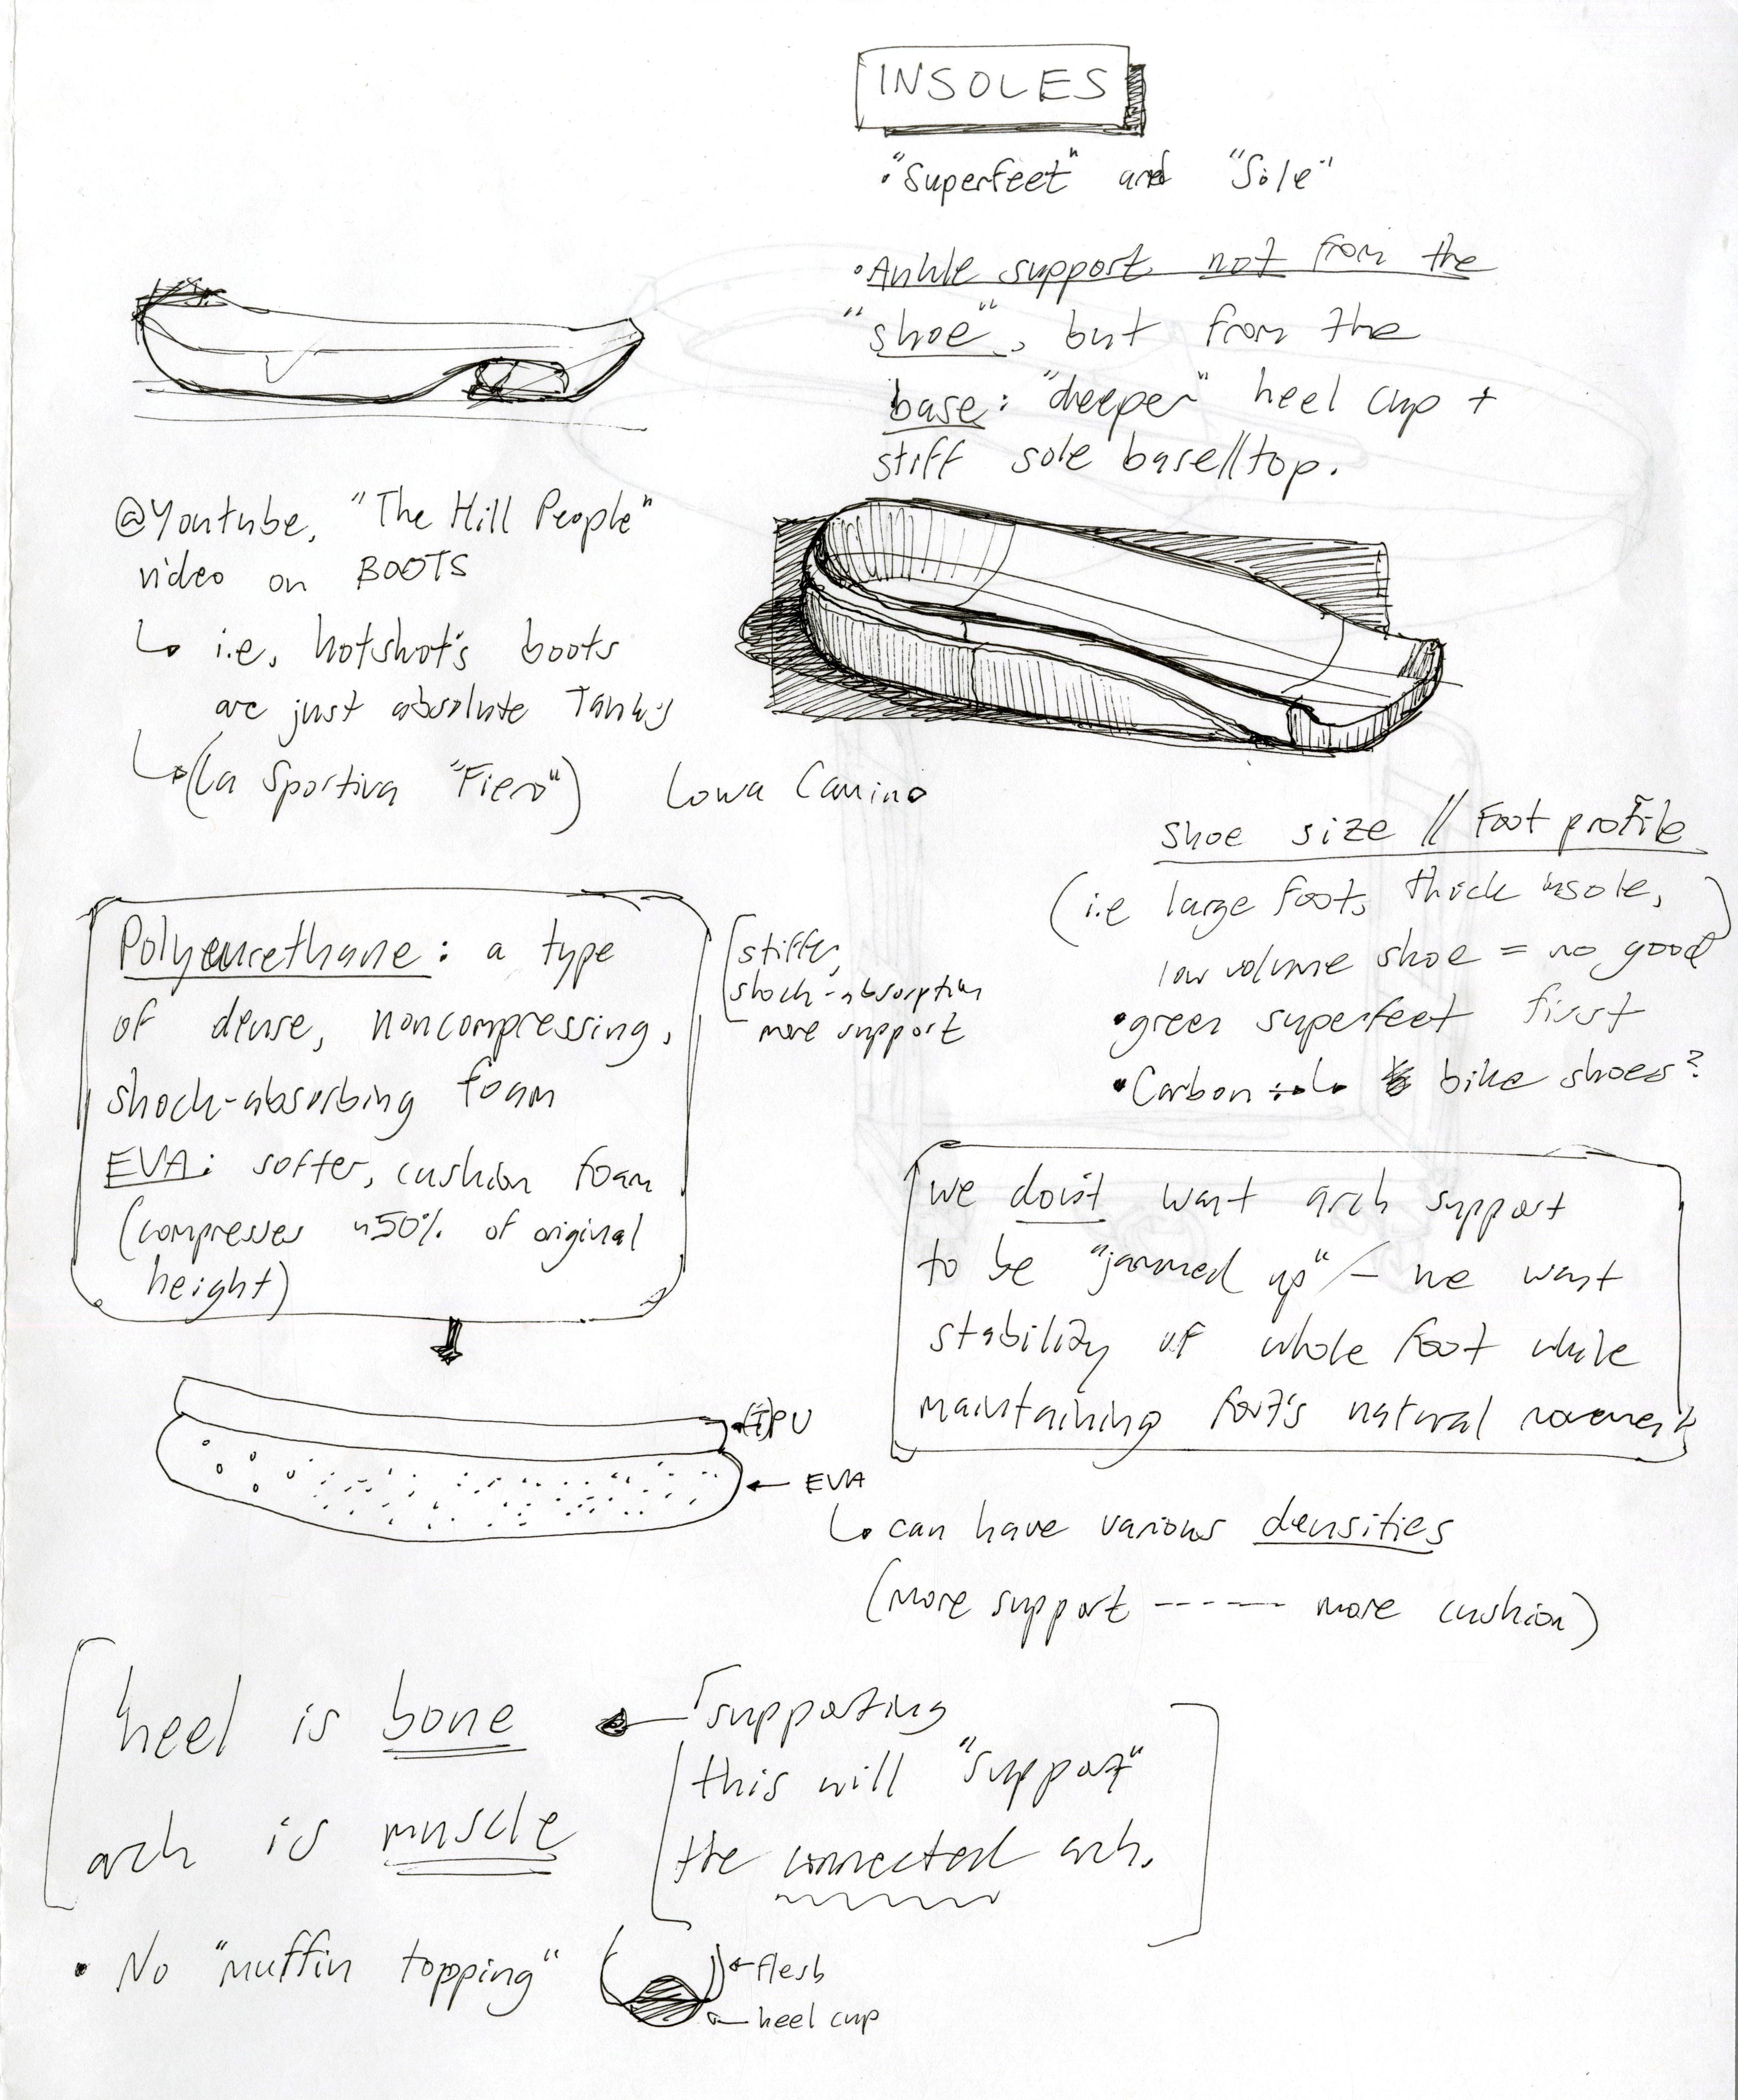 INSOLES
• "Superfeet" and "Sole"
• Ankle support not from the
"shoe", but from the
base: "deeper" heel cup +
stiff sole base//top.
@Youtube, "The Hill People"
video on BOOTS
↳ i.e, hotshot's boots
are just absolute Tanks
↳ (La Sportiva "Fiero") Lowa Camino
shoe size // Foot profile
(i.e large foot, thick insole,
low volume shoe = no good)
• green superfeet first
• Carbon bike shoes?
Polyeurethane: a type
of dense, noncompressing,
shock-absorbing foam
EVA: softer, cushion foam
(compresses ~50% of original
height)
stiffer,
shock-absorption
more support
we don't want arch support
to be "jammed up" – we want
stability of whole foot while
maintaining foot's natural movement
(T)PU
← EVA
↳ can have various densities
(more support ------ more cushion)
heel is bone
arch is muscle
supporting
this will "support"
the connected arch.
• No "muffin topping"
← flesh
← heel cup